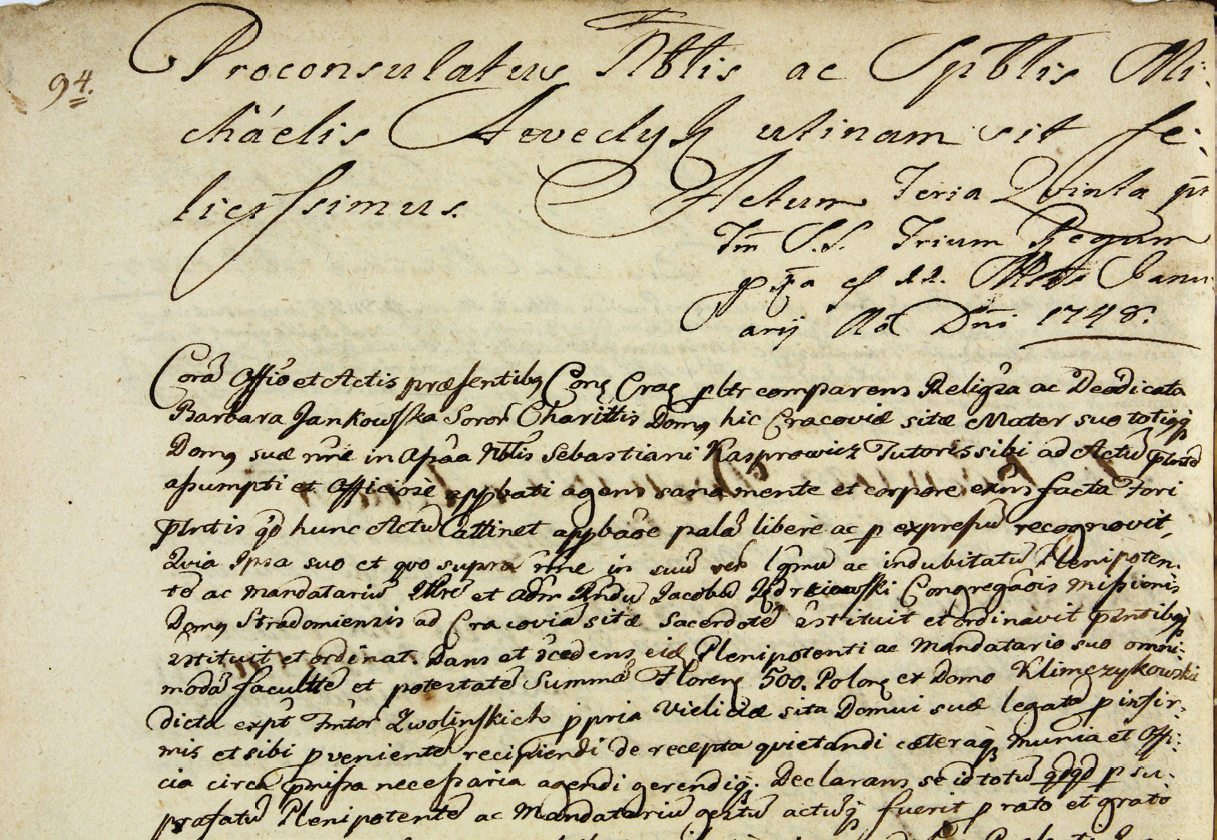 94.
Proconsulatus Nblis ac Spblis Mi:
cháelis Awedyk utinam sit fe:
licissimus.
Actum Feria Qvinta
Tm S.S. Trium Regum
22. Mens Janu
arij Ao Dni 1748.
Corã Offio et Actis præsentibq Conq Cracq pltr comparens Religsa ac Deodicata
Barbara Jankowska Soror Charittis Domq hic Cracoviæ sitæ Mater suo totiqq
Domq suæ nne in Aßña Nblis Sebastiani Kasprowicz Tutoris sibi ad Actũ pñtẽ
aßumpti et Officiosè appbati agens sana mente et corpore facta Fori
pñtis qd hunc Actũ attinet appbaõe palã liberè ac p expreßũ recognovit,
Qvia Ipsa suo et qvo supra nne in suũ verũ lgmũ ac indubitatũ Plenipoten-
tẽ ac Mandatariũ Illrẽ et Adm Rndũ Jacobũ Congregaõis Mißionis
Domq Stradomiensis ad Cracoviã sitæ Sacerdotẽ 9stituit et ordinavit pñtibqq
9stituit et ordinat. Dans et 9cedens eidẽ Plenipotenti ac Mandatario suo omni-
modã facultẽ et potestatẽ Summã Florenq 500. Polonq et Domo Klimczykowska
dicta Zwolinskich ppria Vieliciæ sita Domui suæ legatã p infir-
mis et sibi pvenientẽ recipiendi de recepta qvietandi cæteraqq munia et Offi:
cia circa pmißa neceßaria agendi gerendiqq. Declarans se id totũ qdqd p su-
prafatũ Plenipotentẽ ac Mandatariũ gestũ actũqq fuerit p rato et grato